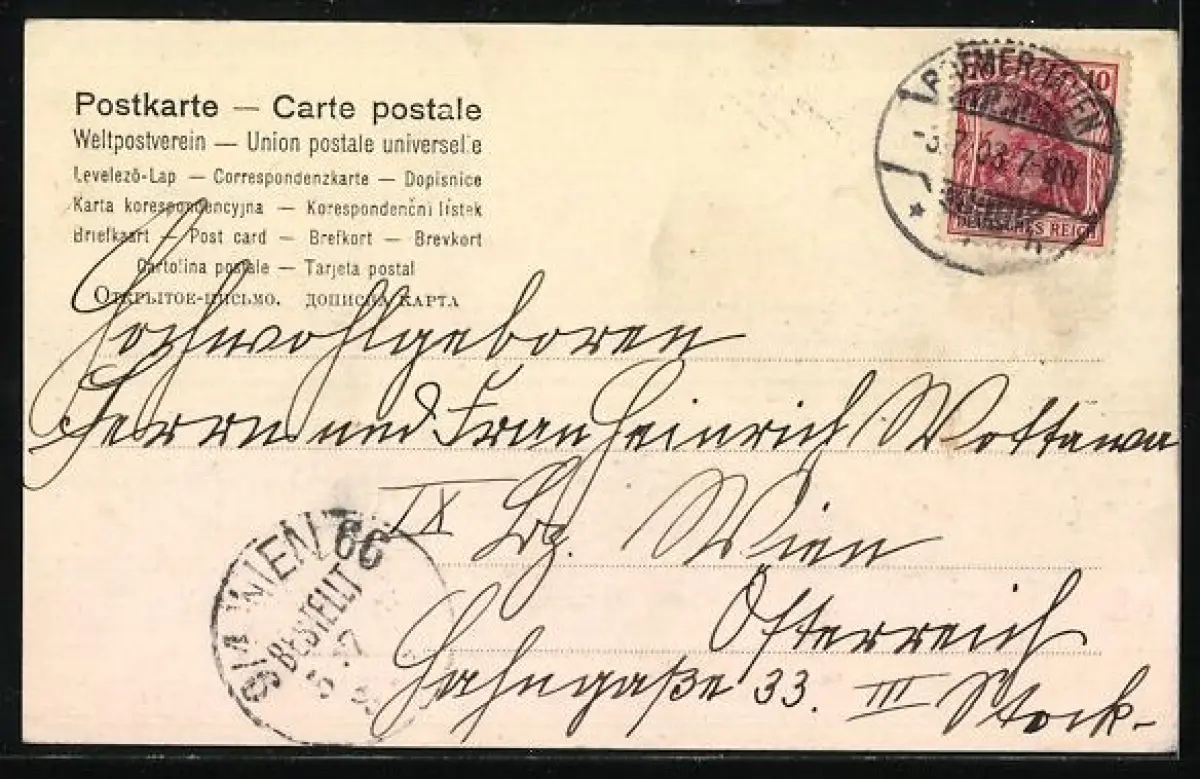 Postkarte — Carte postale
Weltpostverein — Union postale universelle
Levelező-Lap — Correspondenzkarte — Dopisnice
Karta korespondencyjna — Korespondenční lístek
Briefkaart — Post card — Brefkort — Brevkort
Cartolina postale — Tarjeta postal
Открытое-письмо. дописна карта
BREMERHAVEN
7-8N
10
DEUTSCHES REICH
Hochwohlgeboren
Herrn und Frau Heinrich Wottawa
IX Bz. Wien
Österreich
Hahngaße 33. III Stock-
9/1 WIEN 66
BESTELLT